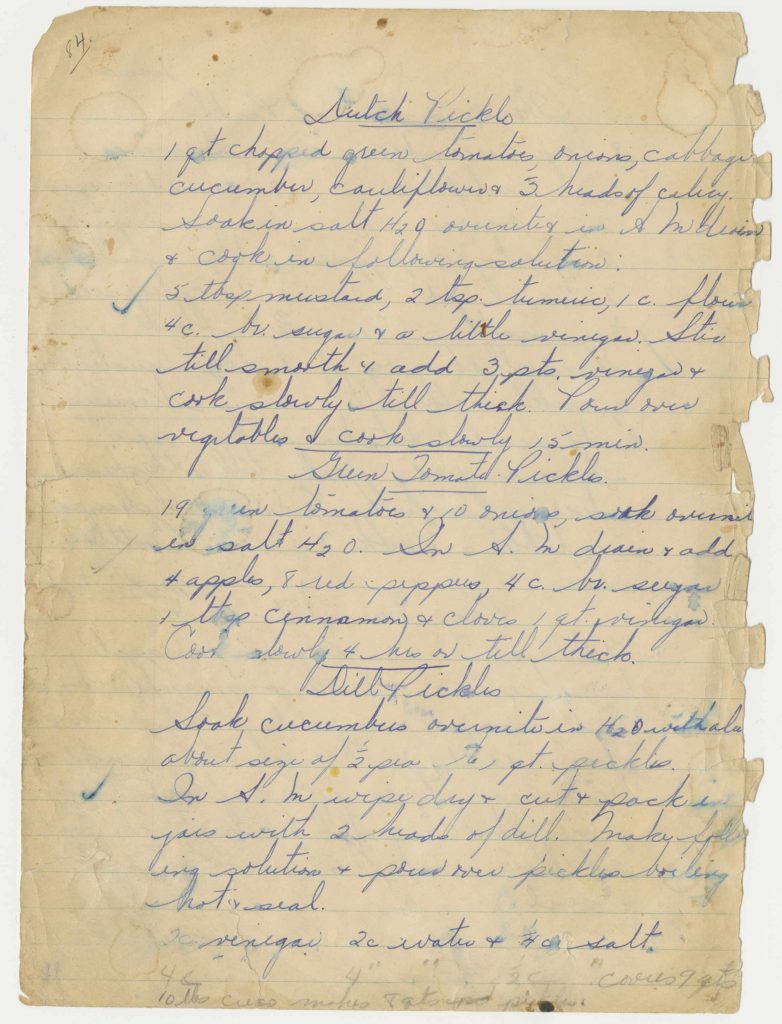 84.
Dutch Pickle
1 qt chopped green tomatoes, onions, cabbage
cucumber, cauliflower & 3 heads of celery.
Soak in salt H2O overnite & in A M drain
& cook in following solution:
5 tbsp mustard, 2 tsp. tumeric, 1 c. flour
4 c. br. sugar & a little vinegar. Stir
till smooth & add 3 pts. vinegar &
cook slowly till thick. Pour over
vegetables & cook slowly 15 min.
Green Tomato Pickles.
19 green tomatoes & 10 onions, soak overnite
in salt H2O. In A. M drain & add
4 apples, 8 red peppers, 4 c. br. sugar
1 tbsp cinnamon & cloves 1 qt. vinegar.
Cook slowly 4 hrs or till thick.
Dill Pickles
Soak cucumbers overnite in H2O with alum
about size of 1/2 pea to 1 qt. pickles.
In A. M. wipe dry & cut & pack in
jars with 2 heads of dill. Make follow
ing solution & pour over pickles boiling
hot & seal.
2c vinegar 2c water & 1/4 c. salt.
4c 4 " " 1/2 c " covers 9 qts
10 lbs cucs makes 8 qts pickles.